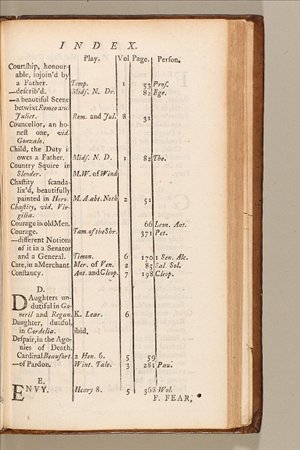 INDEX.
Play. Vol Page. Person.
Courtship, honour-
able, injoin'd by
a Father. Temp. 1 53 Pros.
—describ'd. Mids. N. Dr. 82 Ege.
—a beautiful Scene
betwixt Romeo and
Juliet. Rom. and Jul. 8 31
Councellor, an ho-
nest one, vid.
Gonzalo.
Child, the Duty it
owes a Father. Mids. N. D. 1 82 The.
Country Squire in
Slender. M.W. of Wind
Chastity scanda-
liz'd, beautifully
painted in Hero. M. A. abt. Noth 2 51
Chastity, vid. Vir-
gilia.
Courage in old Men. 66 Leon. Ant.
Courage. Tam. of the Shr. 371 Pet.
—different Notions
of it in a Senator
and a General. Timon. 6 170 1 Sen. Alc.
Care, in a Merchant. Mer. of Ven. 2 85 Sal. Sol.
Constancy. Ant. and Cleop. 7 198 Cleop.
D.
DAughters un-
dutiful in Go-
neril and Regan. K. Lear. 6
Daughter, dutiful,
in Cordelia. ibid.
Despair, in the Ago-
nies of Death.
Cardinal Beaufort. 2 Hen. 6. 5 59
—of Pardon. Wint. Tale. 3 281 Pau.
E.
ENVY. Henry 8. 5 368 Wol.
F. FEAR,